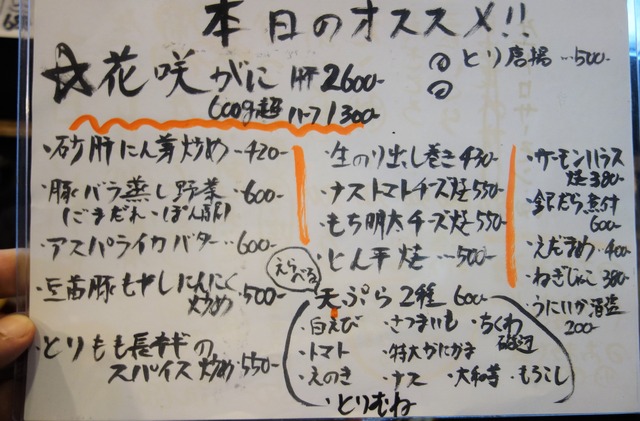 本日のオススメ!!
☆花咲がに 1杯 2600-
600g超 ハーフ1300-
◎とり唐揚…500-
・砂肝にん芽炒め-420-
・豚バラ蒸し野菜・600-
(ごまだれ・ぽん酢)
・アスパライカバター…600-
・豆苗豚もやしにんにく炒め・500-
・とりもも長芋のスパイス炒め・550-
・生のり出し巻き430-
・ナストマトチーズ焼550-
・もち明太チーズ焼550-
・とん平焼…500-
えらべる
天ぷら2種 600-
・白えび ・さつまいも ・ちくわ磯辺
・トマト ・特大かにかま
・えのき ・ナス ・大和芋 ・もろこし
・とりむね
・サーモンハラス焼380-
・銀だら煮付600-
・えだまめ 400-
・ねぎじゃこ 380-
・うにいか酒盗200-